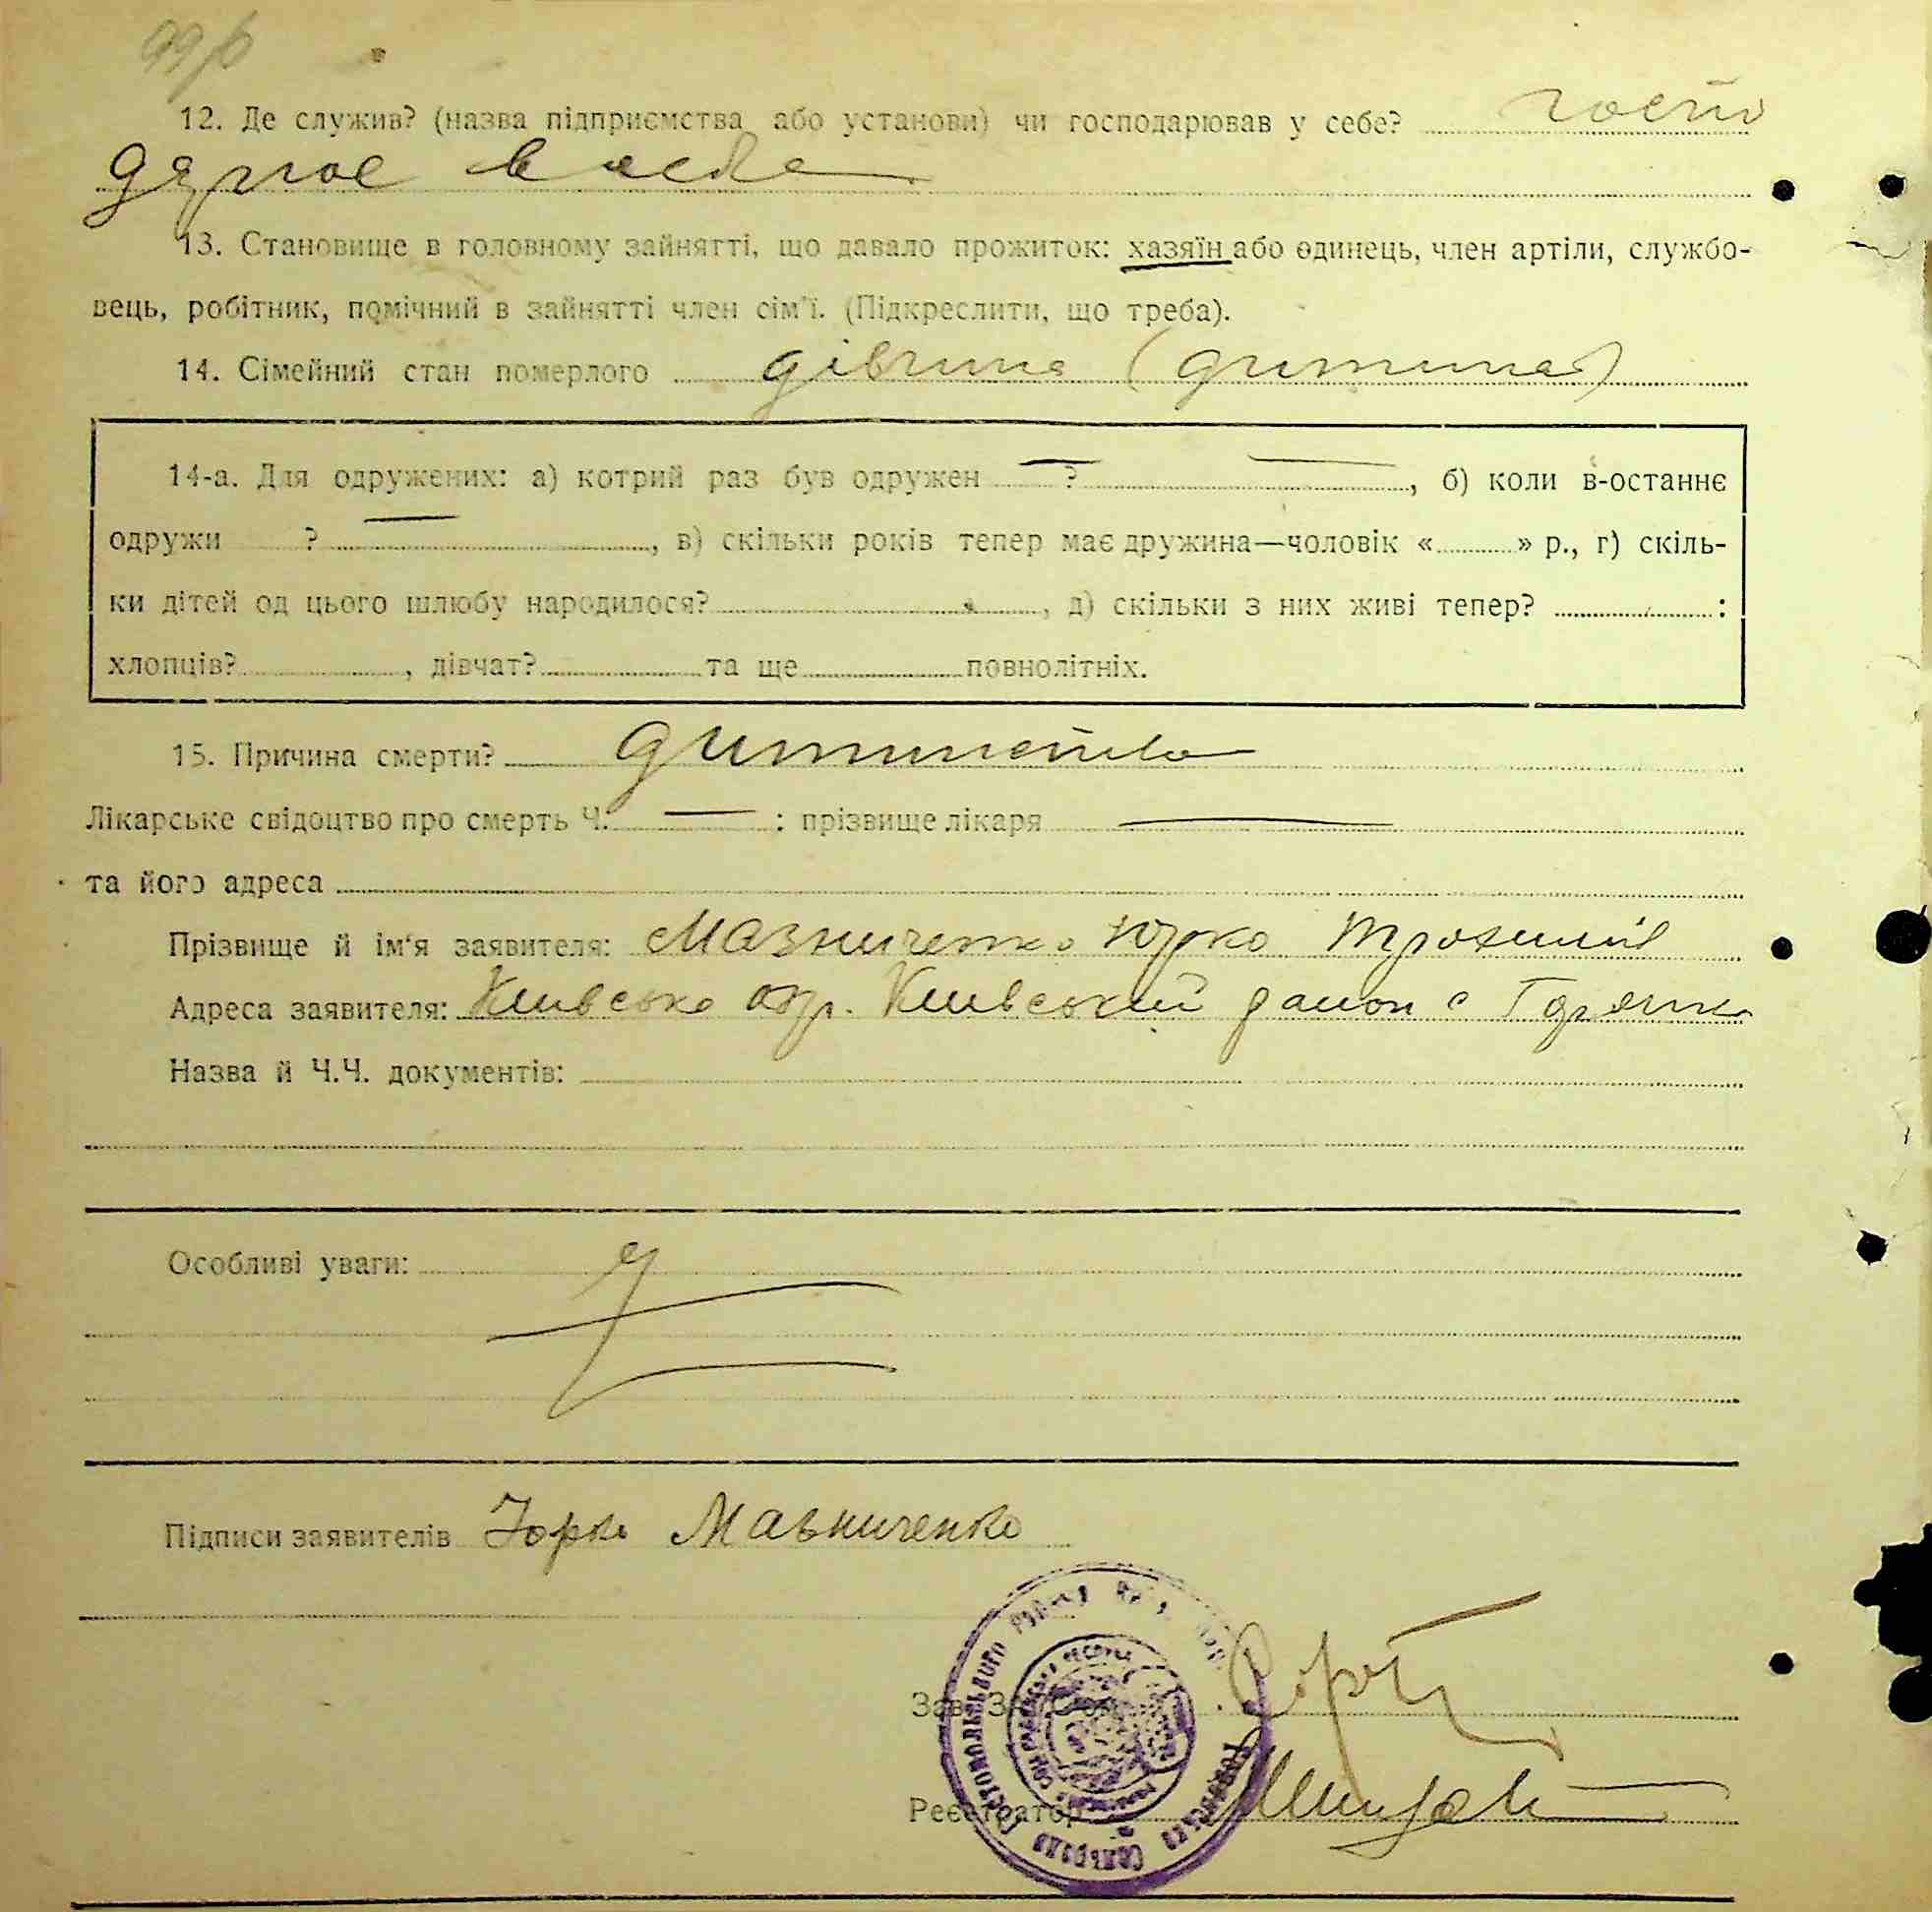 99/б
12. Де служив? (назва підприємства або установи) чи господарював у себе? госпо
дарює в себе
13. Становище в головному зайнятті, що давало прожиток: хазяїн або одинець, член артіли, службо-
вець, робітник, помічний в зайнятті член сім'ї. (Підкреслити, що треба).
14. Сімейний стан померлого дівчина (дитина)
14-а. Для одружених: а) котрий раз був одружен — ? —, б) коли в-останнє
одружи ? —, в) скільки років тепер має дружина—чоловік « » р., г) скіль-
ки дітей од цього шлюбу народилося? , д) скільки з них живі тепер? :
хлопців? , дівчат? та ще повнолітніх.
15. Причина смерти?
Лікарське свідоцтво про смерть Ч. — : прізвище лікаря —
та його адреса
Прізвище й ім'я заявителя: Мазниченко Юрко Трохимів
Адреса заявителя: Київська окр. Київський район с
Назва й Ч.Ч. документів:
Особливі уваги:
Підписи заявителів Юрко Мазниченко
Зав.
Реєстратор
Сельрада Гостомельського району